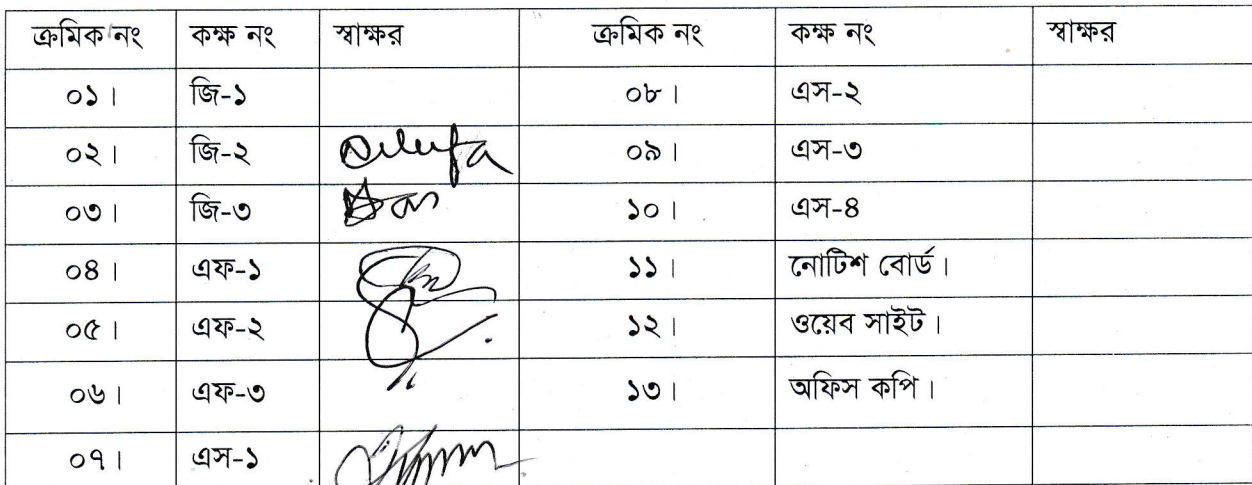 ক্রমিক নং কক্ষ নং স্বাক্ষর ক্রমিক নং কক্ষ নং স্বাক্ষর
০১। জি-১ ০৮। এস-২
০২। জি-২ Dilufa ০৯। এস-৩
০৩। জি-৩ ১০। এস-৪
০৪। এফ-১ ১১। নোটিশ বোর্ড।
০৫। এফ-২ ১২। ওয়েব সাইট।
০৬। এফ-৩ ১৩। অফিস কপি।
০৭। এস-১